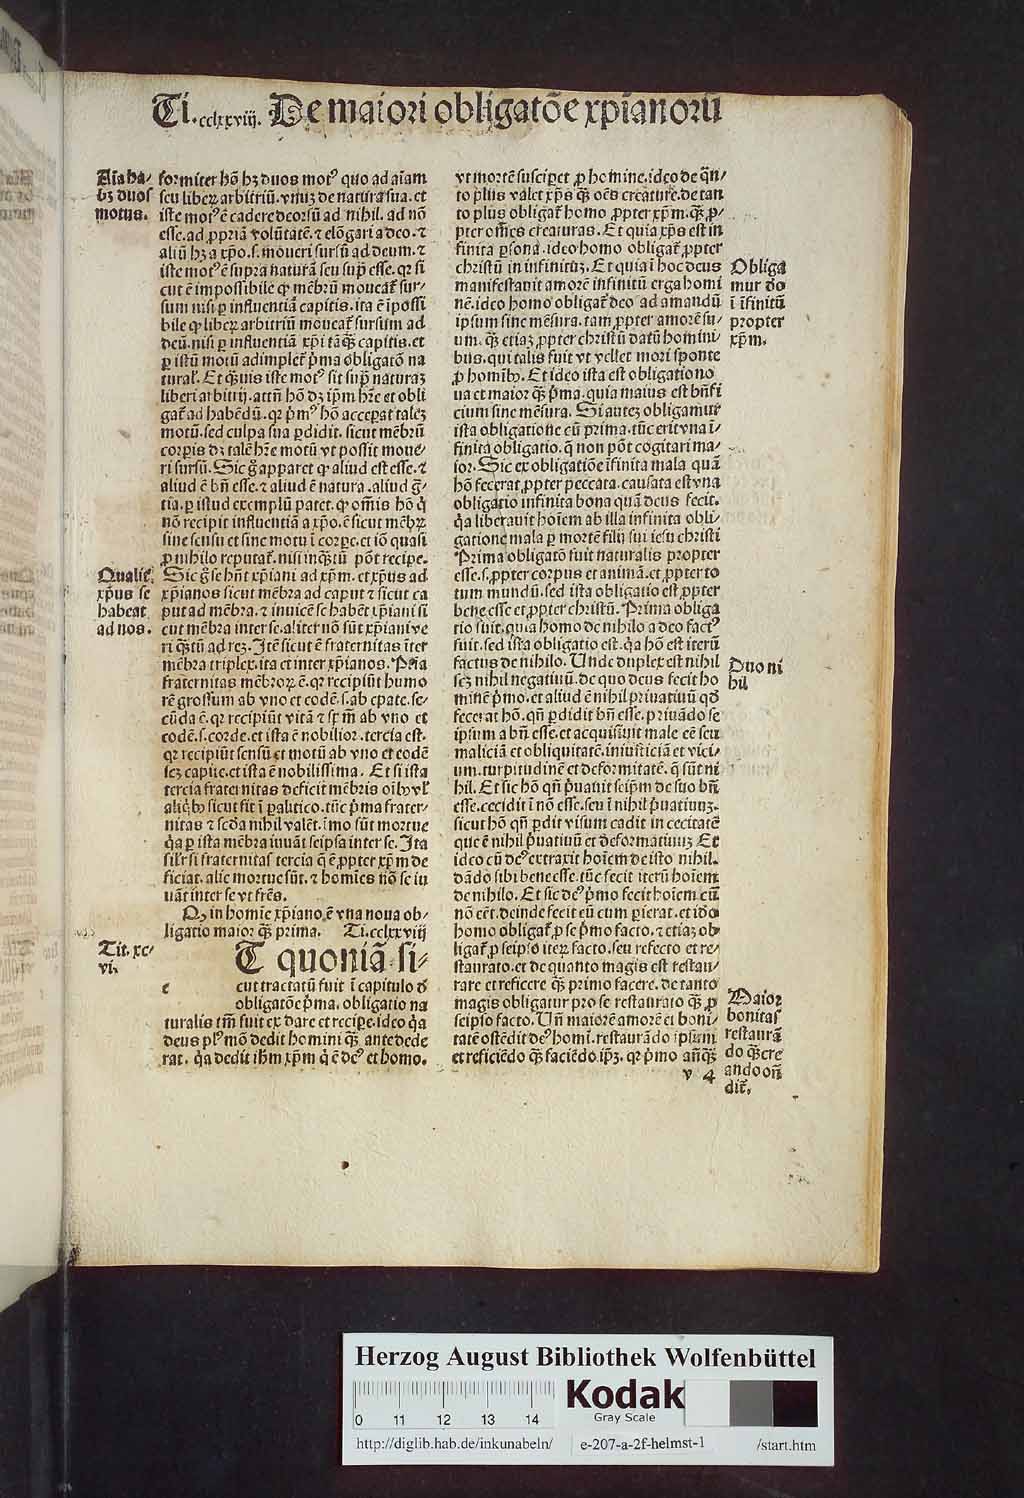 Ti.cclxxviij. De maiori obligatōe xp̄ianorū
Aīa ha-
bꝫ duos
motus.
formiter hō hꝫ duos motꝰ quo ad aīam
seu liberꝝ arbitriū. vnuꝫ de natura sua. et
iste motꝰ ē cadere deorsū ad nihil. ad nō
esse. ad ꝓpriā volūtatē. ⁊ elōgari a deo. ⁊
aliū hꝫ a xp̄o. s. moueri sursū ad deum. ⁊
iste motꝰ ē supra naturā seu suꝑ esse. qꝛ si
cut ē impossibile ꝙ mēbrū moueat᷑ sur-
sum nisi ꝑ influentiā capitis. ita ē īpossi
bile ꝙ liberꝝ arbitriū moueat᷑ sursum ad
deū. nisi ꝑ influentiā xp̄i tāꝙ̄ capitis. et
ꝑ istū motū adimplet᷑ p̄ma obligatō na
tural̕. Et ꝙ̄uis iste motꝰ sit suꝑ naturaꝫ
liberi arbitrij. attn̄ hō dꝫ ip̄m hr̄e et obli
gat᷑ ad habēdū. qꝛ p̄mꝰ hō acceꝑat taleꝫ
motū. sed culpa sua ꝑdidit. sicut mēbrū
corꝑis dꝫ talē hr̄e motū vt possit moue-
ri sursū. Sic g̊ apparet ꝙ aliud est esse. ⁊
aliud ē bn̄ esse. ⁊ aliud ē natura. aliud gr̄-
tia. ꝑ istud exemplū patet. ꝙ om̄is hō q̇
nō recipit influentiā a xp̄o. ē sicut mēbꝝ
sine sensu et sine motu ī corꝑe. et iō quasi
ꝓ nihilo reputat᷑. nisi inꝙ̄tū pōt recipe.
Qualiẜ
xp̄us se
habeat
ad nos.
Sic g̊ se hn̄t xp̄iani ad xp̄m. et xp̄us ad
xp̄ianos sicut mēbra ad caput ⁊ sicut ca
put ad mēbra. ⁊ inuicē se habēt xp̄iani si
cut mēbra inter se. aliter nō sūt xp̄iani ve
ri ꝙ̄tū ad reꝫ. Itē sicut ē fraternitas iter
mēbra triplex. ita et inter xp̄ianos. Pr̄ia
fraternitas mēbroꝝ ē. qꝛ recipiūt humo
rē grossum ab vno et eodē. s. ab epate. se-
cūda ē. qꝛ recipiūt vitā ⁊ sp̄m ab vno et
eodē. s. corde. et ista ē nobilior. tercia est.
qꝛ recipiūt sensū et motū ab vno et eodē
scꝫ capite. et ista ē nobilissima. Et si ista
tercia fraternitas deficit mēbris oībꝰ vl̕
aliq̄bꝰ sicut fit ī ꝑalitico. tūc p̄ma frater-
nitas ⁊ scd̄a nihil valēt. īmo sūt mortue
q̇a ꝑ ista mēbra iuuāt seipsa inter se. Ita
sil̕r si fraternitas tercia q̄ ē ꝓpter xp̄m de
ficiat. alie mortue sūt. ⁊ homīes nō se iu
uāt inter se vt fr̄es.
Ꝙ in homīe xp̄iano ē vna noua ob-
ligatio maior ꝙ̄ prima. Ti.cclxxviij
Tit. xc-
vi.
e
T quoniā si-
cut tractatū fuit ī capitulo ḋ
obligatōe p̄ma. obligatio na
turalis tm̄ fuit ex dare et recipe. ideo q̇a
deus plꝰ mō dedit homini ꝙ̄ ante dede
rat. q̇a dedit ih̄m xp̄m q̇ ē deꝰ et homo.
vt mortē susciperet ꝓ homine. ideo de q̄n-
to plus valet xp̄s ꝙ̄ oēs creature. de tan
to plus obligat᷑ homo ꝓpter xp̄m. ꝙ̄ ꝓ-
pter om̄es creaturas. Et quia xp̄s est in
finita ꝑsona. ideo homo obligat᷑ ꝓpter
christū in infinituꝫ. Et quia ī hoc deus
manifestauit amorē infinitū erga homi
nē. ideo homo obligat᷑ deo ad amandū
ipsum sine mēsura. tam ꝓpter amorē su-
um. ꝙ̄ etiaꝫ ꝓpter christū datū homini-
bus. qui talis fuit vt vellet mori sponte
ꝓ hominibꝰ. Et ideo ista est obligatio no
ua et maior ꝙ̄ p̄ma. quia maius est bn̄fi
cium sine mēsura. Si auteꝫ obligamur
ista obligatione cū prima. tūc erit vna ī-
finita obligatio. q̄ non pōt cogitari ma-
ior. Sic ex obligatiōe īfinita mala quā
hō fecerat ꝓpter peccata. causata est vna
obligatio infinita bona quā deus fecit.
q̇a liberauit hoīem ab illa infinita obli-
gatione mala ꝑ mortē filij sui iesu christi
Prima obligatō fuit naturalis propter
esse. s. ꝓpter corpus et animā. et ꝓpter to
tum mundū. sed ista obligatio est ꝓpter
bene esse et ꝓpter christū. Prima obliga
tio fuit. quia homo de nihilo a deo factꝰ
fuit. sed ista obligatio est. q̇a hō est iterū
factus de nihilo. Unde duplex est nihil
scꝫ nihil negatiuū. de quo deus fecit ho
minē p̄mo. et aliud ē nihil priuatiuū qḋ
fecerat hō. qn̄ ꝑdidit bn̄ esse. priuādo se
ipsum a bn̄ esse. et acquisiuit male eē seu
maliciā et obliquitatē. iniusticiā et vici-
um. turpitudinē et deformitatē. q̄ sūt ni
hil. Et sic hō qn̄ p̄uauit seip̄m de suo bn̄
esse. cecidit ī nō esse. seu ī nihil p̄uatiuuꝫ.
sicut hō qn̄ ꝑdit visum cadit in cecitatē
que ē nihil p̄uatiuū et deformatiuuꝫ Et
ideo cū deꝰ extraxit hoīem de isto nihil.
dādo sibi bene esse. tūc fecit iterū hoīem
de nihilo. Et sic deꝰ p̄mo fecit hoīem cū
nō eēt. deinde fecit eū cum ꝑierat. et ido
homo obligat᷑ ꝓ se p̄mo facto. ⁊ etiaꝫ ob
ligat᷑ ꝓ seipso iterꝫ facto. seu refecto et re-
staurato. et de quanto magis est restau-
rare et reficere ꝙ̄ primo facere. de tanto
magis obligatur pro se restaurato ꝙ̄ ꝓ
seipso facto. Un̄ maiorē amorē et boni-
tatē ostēdit deꝰ homī. restaurādo ipsum
et reficiēdo ꝙ̄ faciēdo. ip̄ꝫ. qꝛ p̄mo an̄ꝙ̄
Obliga
mur ḋo
ī īfinitū
propter
xp̄m.
Duo ni
hil
Maior
bonitas
restaurā
do ꝙ̄ cre
ando on̄
dit᷑.
v 4
Herzog August Bibliothek Wolfenbüttel
Kodak
Gray Scale
0 11 12 13 14
http://diglib.hab.de/inkunabeln/ e-207-a-2f-helmst-1 /start.htm